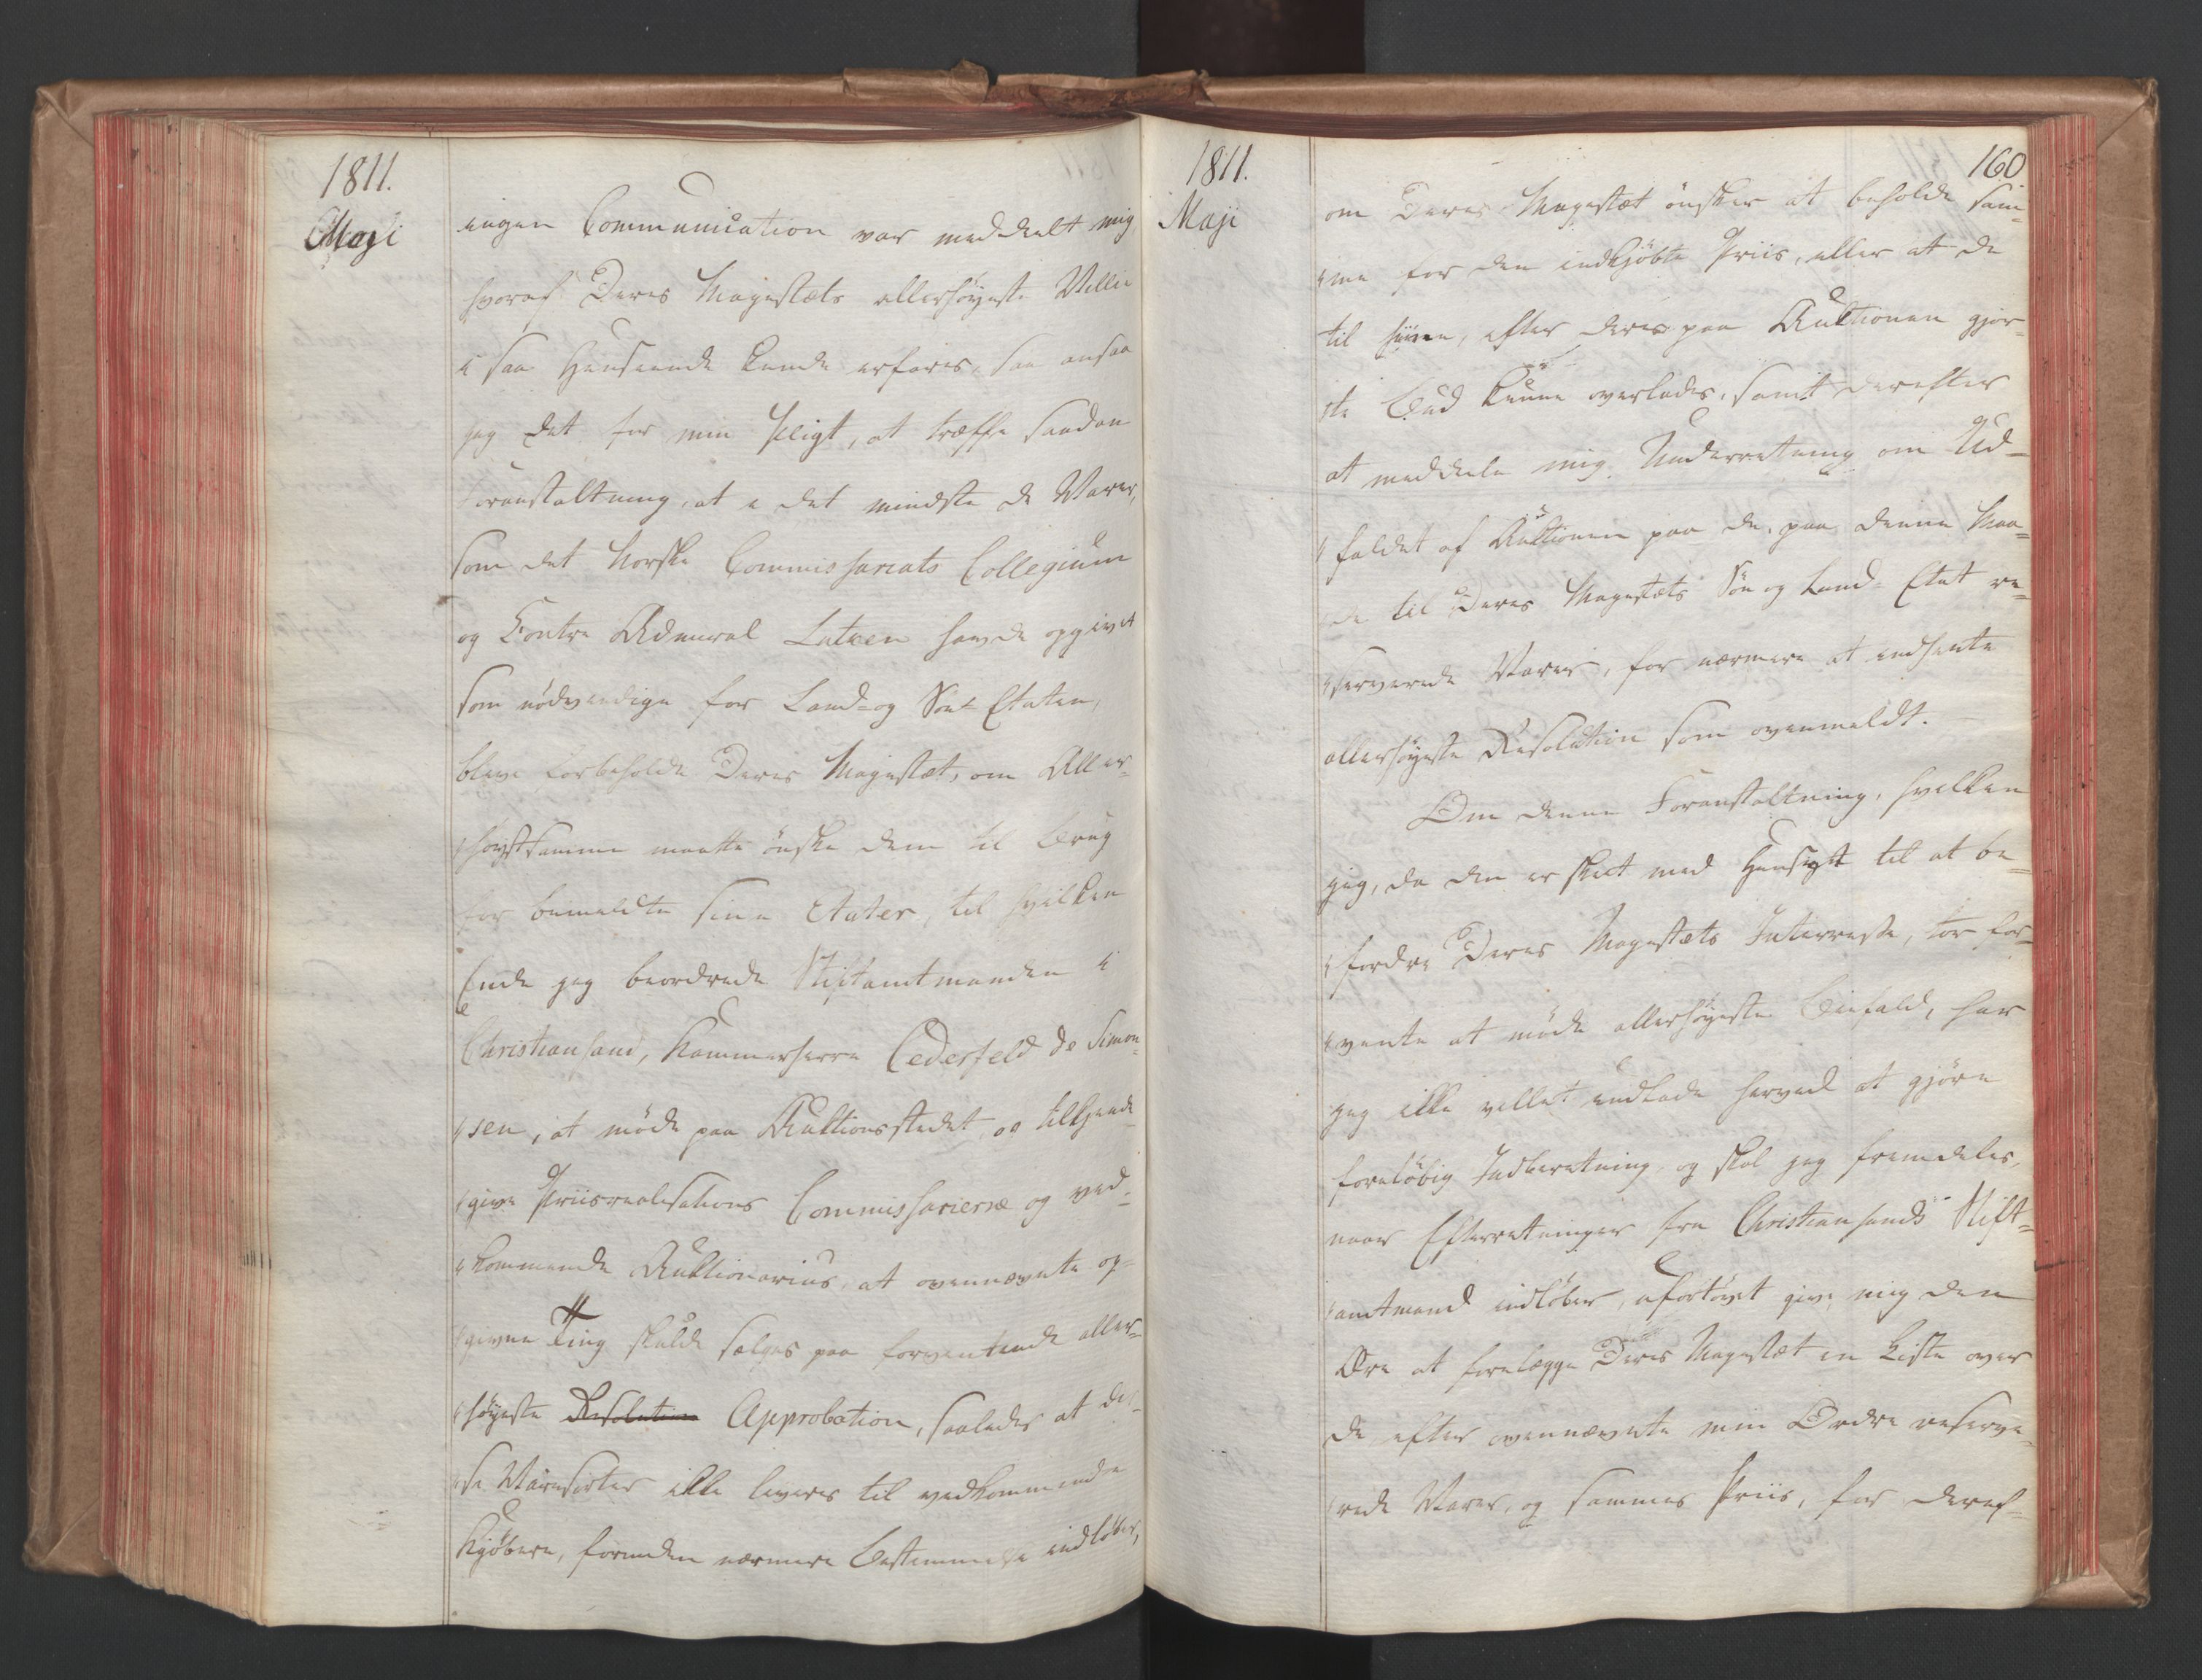 1811.
Maji
ingen Communication var meddeelt mig
hvoraf Deres Majestæts allerhøyeste Villie
i saa Henseende kunde erfares, saa ansaa
jeg det for min Pligt, at træffe saadan
Foranstaltning, at i det mindste de Varer,
som det Norske Commissariats Collegium
og Contre Admiral Lütken havde opgivet
som nødvendige for Land- og Søe-Etaten,
bleve forbeholdt Deres Majestæt, om Aller-
høystsamme maatte ønske dem til Brug
for bemeldte sine Etater, til hvilken
Ende jeg beordrede Stiftamtmanden i
Christiansand, Kammerherre Cederfeld de Simon-
sen, at møde paa Auktionsstedet og tilkjende-
give Priisrealisations Commissarierne og ved-
kommende Auktionarius, at ovennævnte op-
givne Ting skulde sælges paa forventende aller-
høyeste Resolution Approbation, saaledes at dis-
se Varesorter ikke leveres til vedkommende
Kjøbere, forinden nærmere Bestemmelse indløber,
1811.
Maji
160
om Deres Majestæt ønsker at beholde sam-
me for den indkjøbte Priis, eller at de
til hiine, efter deres paa Auktionen gjor-
te Bud kunne overlades, samt derefter
at meddele mig Underretning om Ud-
faldet af Auktionen paa de, paa denne Maa-
de til Deres Majestæts Søe og Land-Etat re-
serverede Varer, for nærmere at indhente
allerhøyeste Resolution som ovenmeldt.
Om denne Foranstaltning, hvilken
jeg, da den er skeet med Hensigt til at be-
fordre Deres Majestæts Interesse, tør for-
vente at møde allerhøyeste Biefald, har
jeg ikke villet undlade herved at gjøre
foreløbig Indberetning, og skal jeg fremdeles,
naar Efterretninger fra Christiansands Stift-
amtmand indløber, ufortøvet give mig den
Ære at forelægge Deres Majestæt en Liste over
de efter ovennævnte min Ordre reserve-
rede Varer, og sammes Priis, for deref-